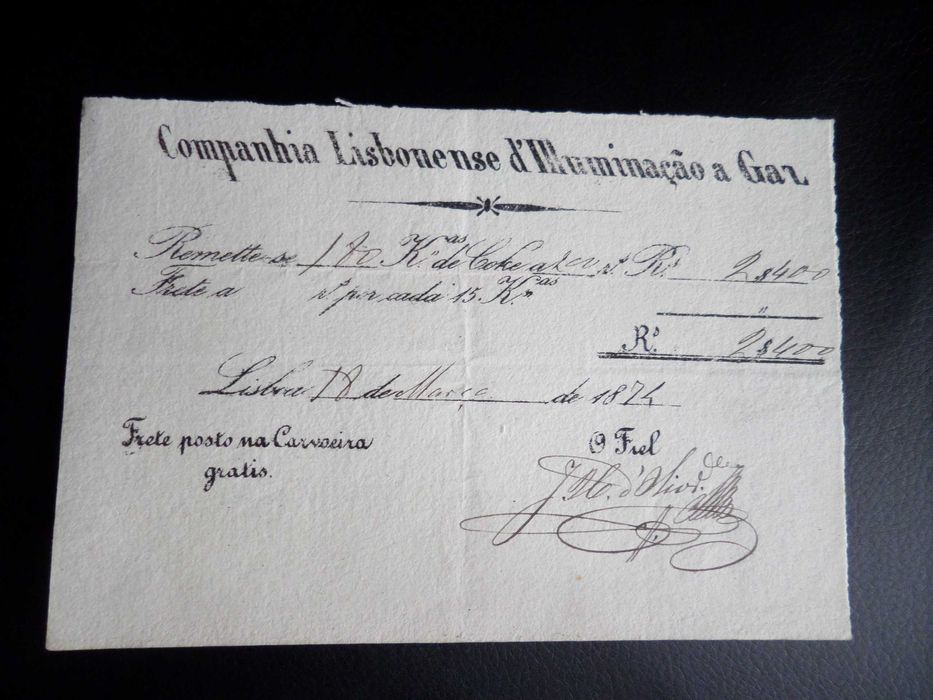 Companhia Lisbonense d'Illuminação a Gaz
Remette-se 180 K.ᵃˢ de Coke a r.ˢ R.ˢ 2$400
Frete a r.ˢ por cada 15 K.ᵃˢ "
R.ˢ 2$400
Lisboa 18 de Março de 1874
Frete posto na Carvoeira
gratis.
O Fiel